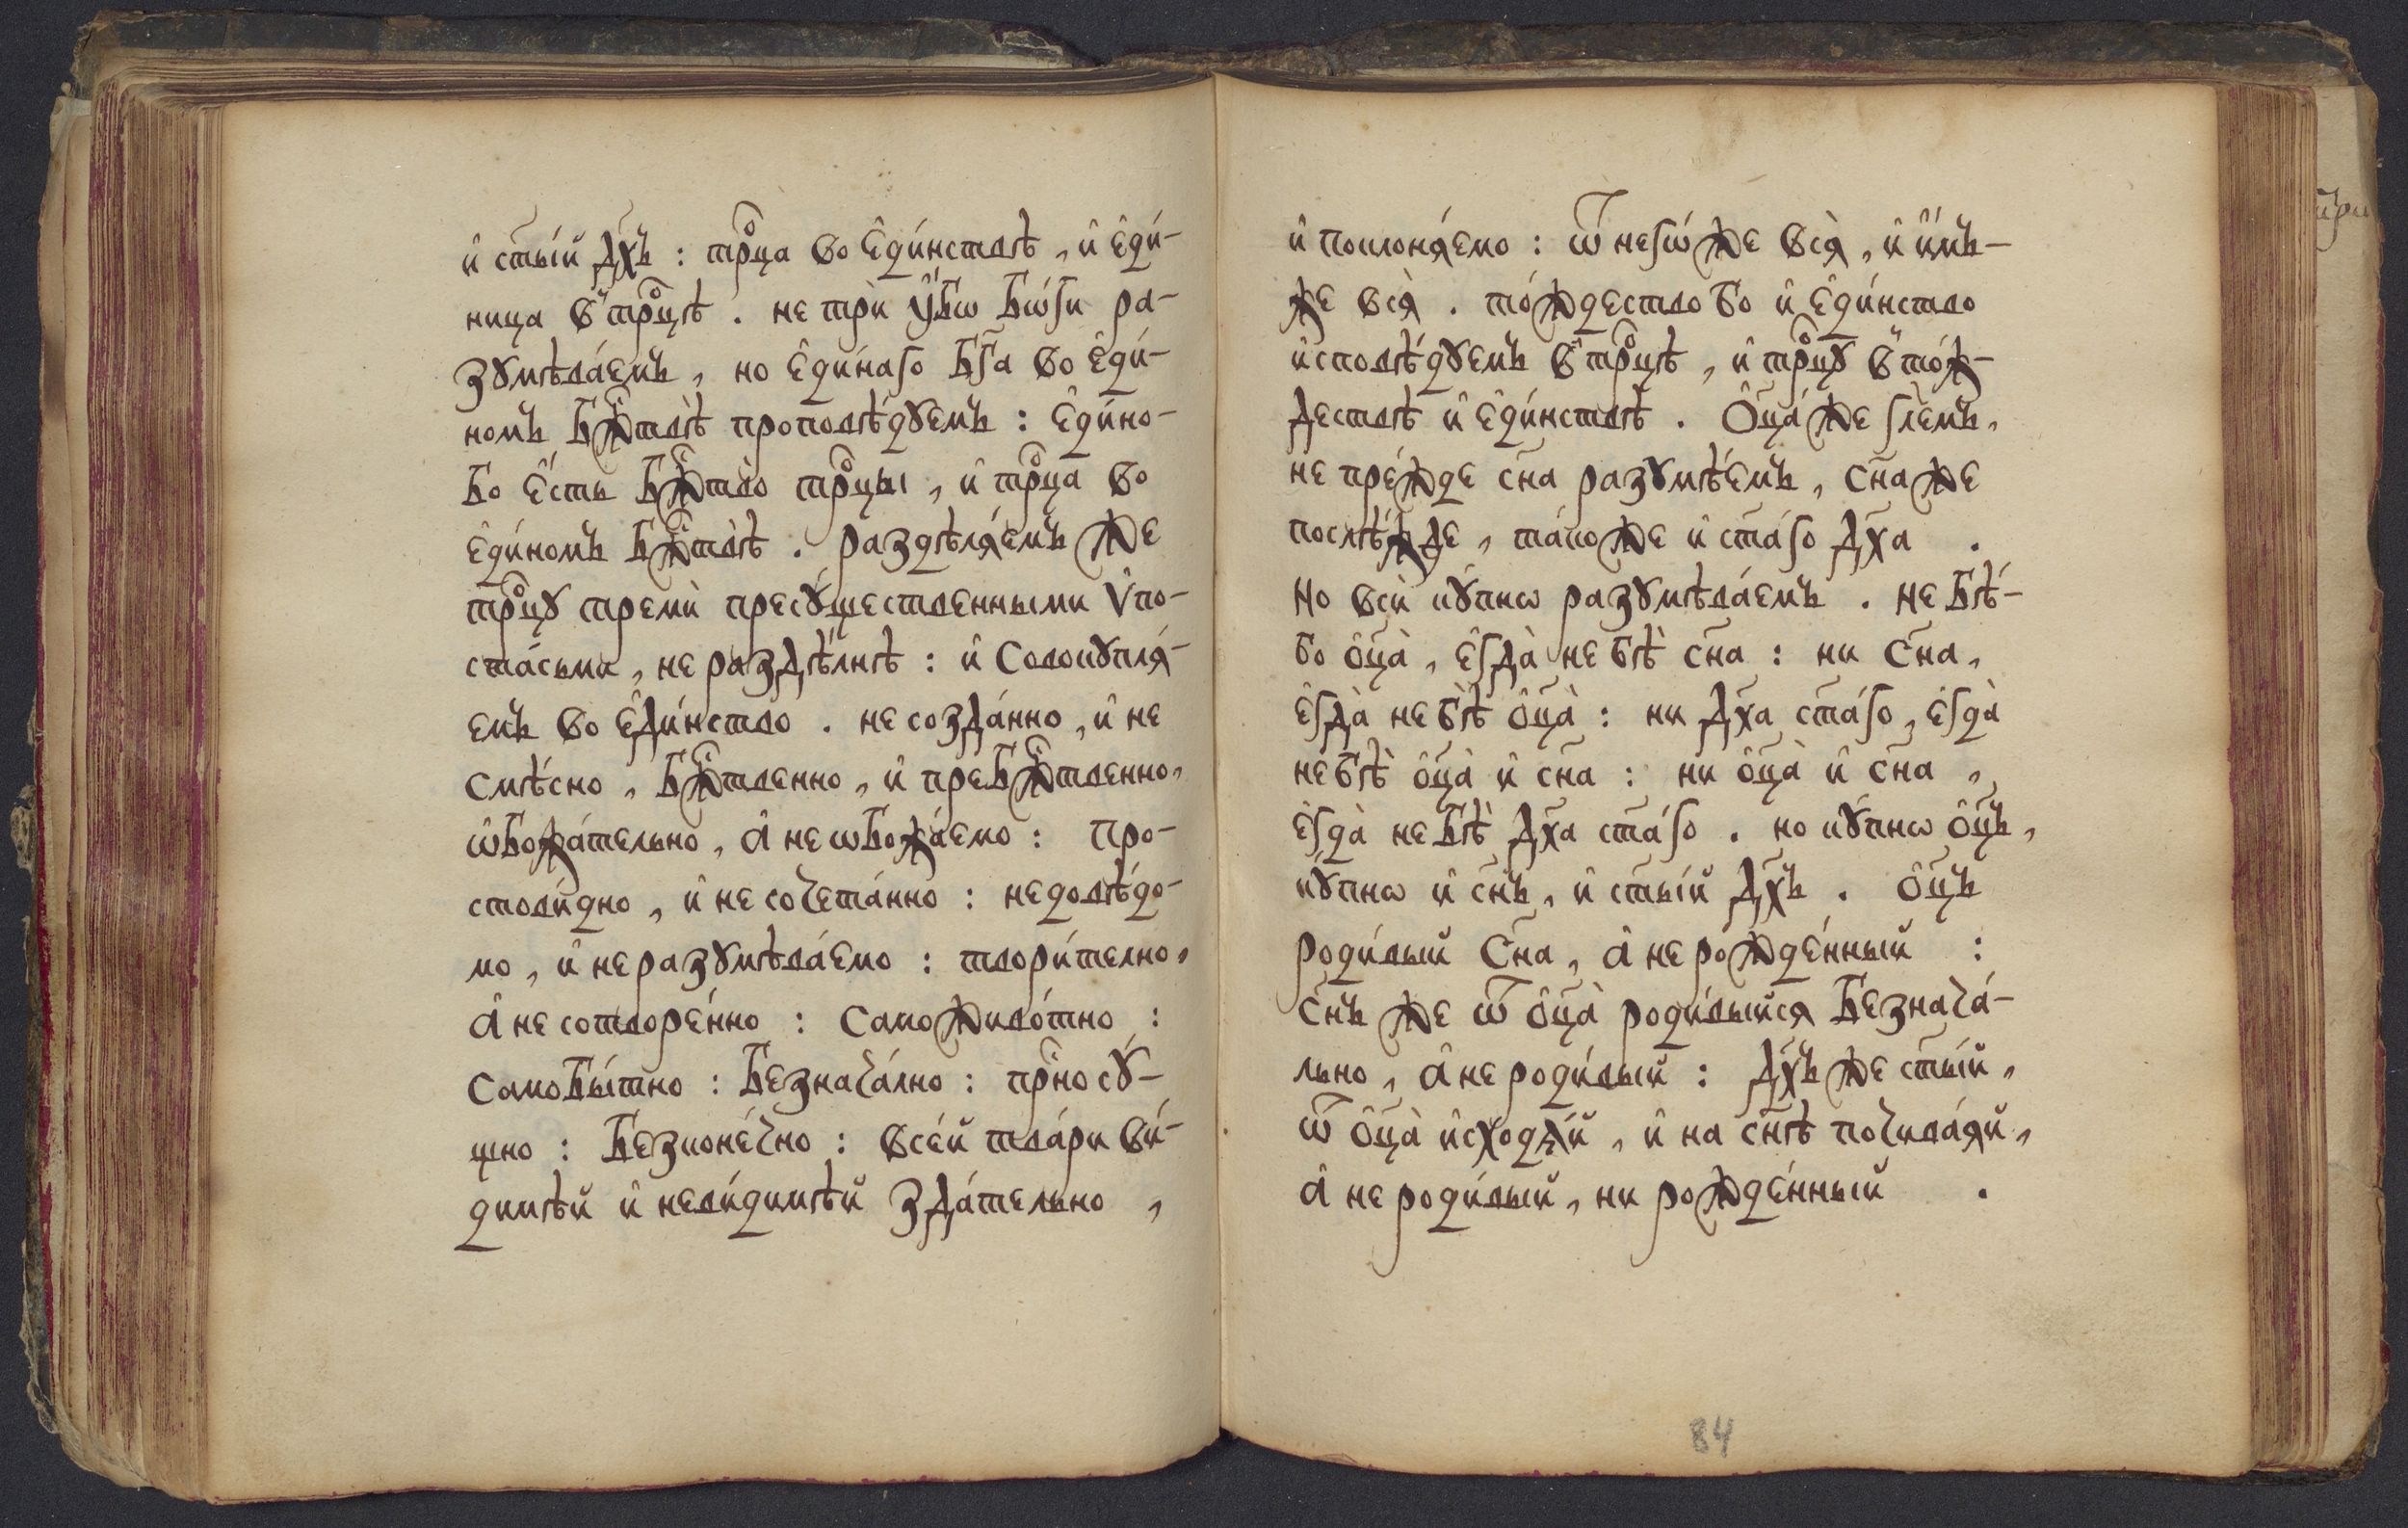 и҆ ст҃ы́й дх҃ъ : трⷪ҇ца во є҆ди́нствѣ , и҆ є҆ди́-
ница в̾ трⷪ҇цѣ . не трѝ ᲂу҆́бѡ бѡ́ги ра-
зꙋмѣва́емъ , но є҆ди́наго бг҃а во є҆ди́-
номъ бж҃твѣ̀ проповѣ́дꙋемъ : є҆ди́но-
бо є҆́сть бж҃тво̀ трⷪ҇цы , и҆ трⷪ҇ца во
є҆ди́номъ бж҃твѣ̀ . раздѣлѧ́емъ же
трⷪ҇цꙋ тремѝ пресꙋ́щественными ѵ҆по-
ста́сьми , не раздѣ́лнѣ : и҆ совокꙋплѧ́-
емъ во є҆ди́нство . не созда́нно , и҆ не
смѣ́сно , бж҃твенно , и҆ пребж҃твенно ,
ѡ҆божа́тельно , а҆ не ѡбожа́емо : про-
стови́дно , и҆ не сочета́нно : недовѣ́до-
мо , и҆ не разꙋмѣва́емо : твори́телно ,
а҆ не сотворе́нно : саможиво́тно :
самобы́тно : безнача́лно : прⷭ҇носꙋ́-
щно : безконе́чно : все́й тва́ри ви́-
димѣй и҆ неви́димѣй зда́тельно ,
и҆ поклонѧ́емо : ѿ негѡ́же всѧ̀ , и҆ и҆́мъ-
же всѧ̀ . то́ждество бо и҆ є҆ди́нство
и҆сповѣ́дꙋемъ в̾ трⷪ҇цѣ , и҆ трⷪ҇цꙋ в̾ то́ж-
дествѣ и҆ є҆ди́нствѣ . ѻ҆ц҃а́ же гл҃емъ ,
не пре́жде сн҃а разꙋмѣ́емъ , сн҃а же
послѣ́жде , та́коже и҆ ст҃а́го дх҃а .
но всѝ кꙋ́пнѡ разꙋмѣва́емъ . не бѣ́-
бо ѻ҆ц҃а̀ , є҆гда̀ не бѣ̀ сн҃а : ни сн҃а ,
є҆гда̀ не бѣ̀ ѻ҆ц҃а̀ : ни дх҃а ст҃а́го , є҆гда̀
не бѣ̀ ѻ҆ц҃а̀ и҆ сн҃а : ни ѻ҆ц҃а̀ и҆ сн҃а ,
є҆гда̀ не бѣ̀ дх҃а ст҃а́го . но кꙋ́пнѡ ѻ҆ц҃ъ ,
кꙋ́пнѡ и҆ сн҃ъ , и҆ ст҃ы́й дх҃ъ . ѻ҆ц҃ъ
роди́вый сн҃а , а҆ не рожде́нный :
сн҃ъ же ѿ ѻ҆ц҃а̀ роди́выйсѧ безнача́-
льно , а҆ не роди́вый : дх҃ъ же ст҃ы́й ,
ѿ ѻ҆ц҃а̀ и҆сходѧ́й , и҆ на сн҃ѣ почива́ѧй ,
а҆ не роди́вый , ни рожде́нный .
84